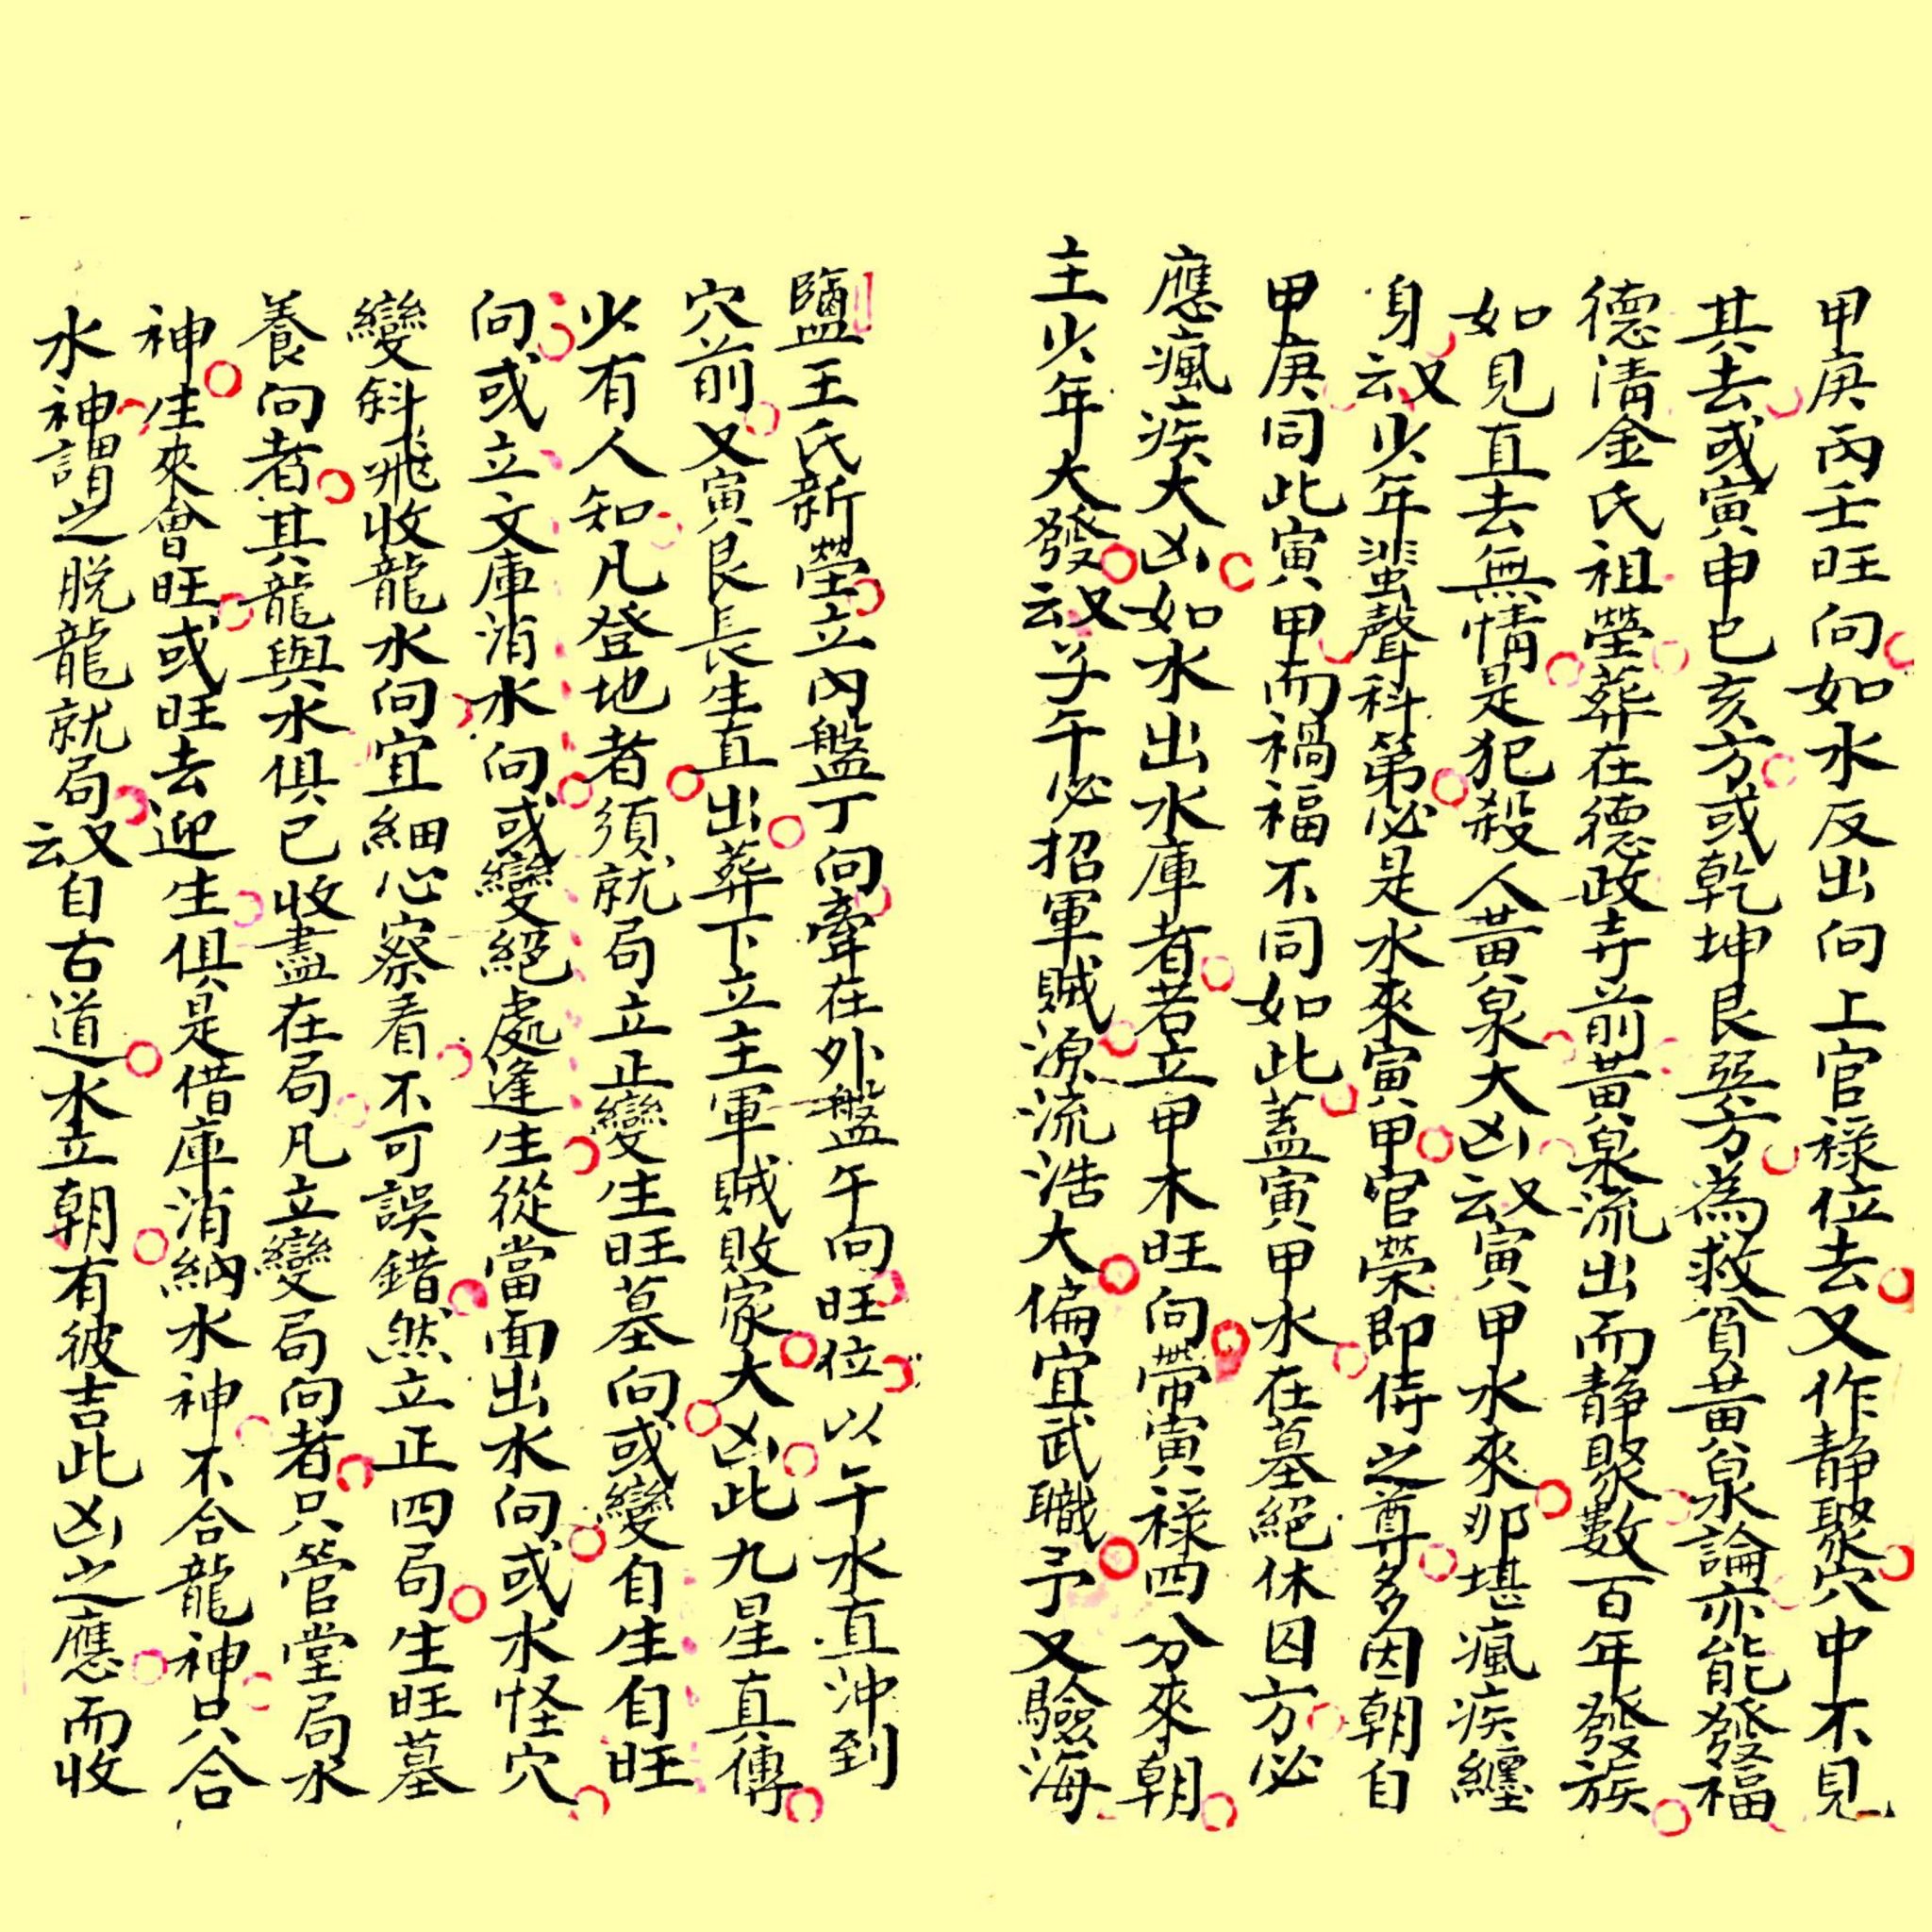 甲庚丙壬旺向如水反出向上官祿位去又作静聚穴中不見
其去或寅申巳亥方或乾坤艮巽方為救貧黃泉論亦能發福
德清金氏祖塋葬在德政寺前黃泉流出而静聚數百年發族
如見直去無情是犯殺人黃泉大凶又云寅甲水來那堪瘋疾纏
身又云少年蜚聲科第必是水來寅甲官榮即侍之尊多因朝自
甲庚同此寅甲而禍福不同如此蓋寅甲水在墓絕休囚方必
應瘋疾大凶如水出水庫者若立甲木旺向帶寅祿四分來朝
主少年大發又云子午必招軍賊源流浩大偏宜武職予又驗海
鹽王氏新塋立內盤丁向牽在外盤午向旺位以午水直沖到
穴前又寅艮長生直出葬下立主軍賊敗家大凶此九星真傳
少有人知凡登地者須就局立正變生旺墓向或變自生自旺
向或立文庫消水向或變絕處逢生從當面出水向或水怪穴
變斜飛收龍水向宜細心察看不可誤錯然立正四局生旺墓
養向者其龍與水俱已收盡在局凡立變局向者只管堂局水
神生來會旺或旺去迎生俱是借庫消納水神不合龍神只合
水神謂之脱龍就局又云自古道水立朝有彼吉此凶之應而收